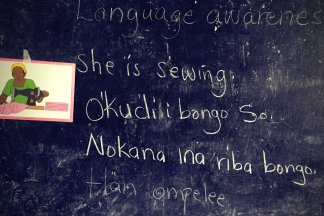 Language awarenes
she is sewing.
Okudili bongo So.
Nokana ina riba bongo.